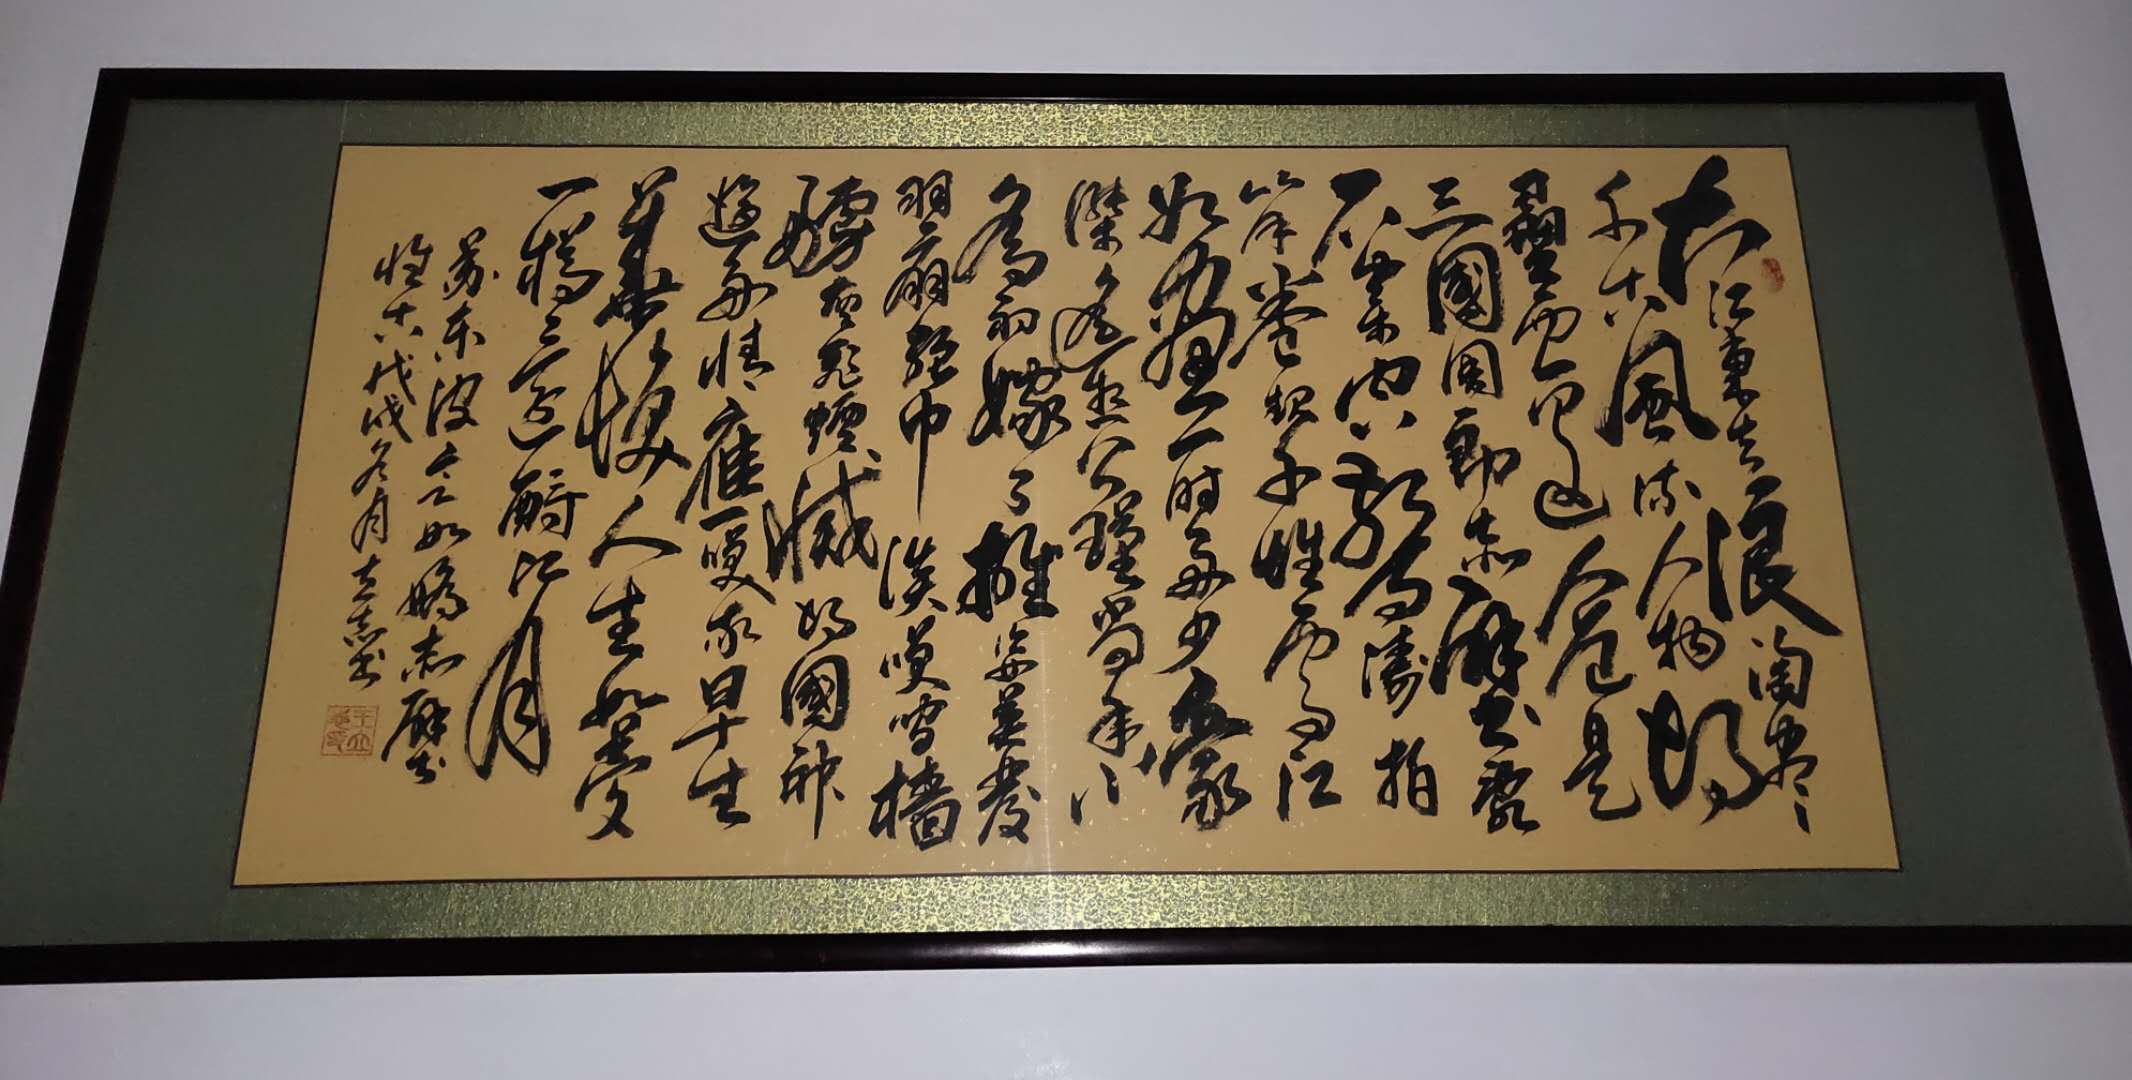 大江東去浪淘盡
千古風流人物故
壘西邊人道是
三國周郎赤壁亂
石穿空驚濤拍
岸卷起千堆雪江
如畫一时多少豪
傑遙想公瑾當年小
喬初嫁了雄姿英發
羽扇綸巾談笑間檣
櫓灰飛煙滅故國神
遊多情應笑我早生
華髮人生如夢
一樽還酹江月
蘇东坡念奴嬌赤壁
懷古戊戌冬月立志书